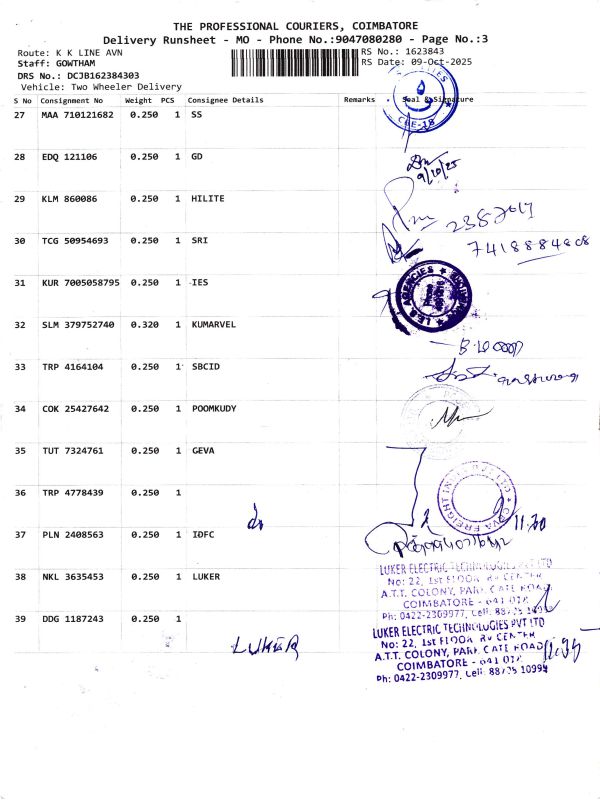 THE PROFESSIONAL COURIERS, COIMBATORE
Delivery Runsheet - MO - Phone No.:9047080280 - Page No.:3
Route: K K LINE AVN
RS No.: 1623843
Staff: GOWTHAM
RS Date: 09-Oct-2025
DRS No.: DCJB162384303
Vehicle: Two Wheeler Delivery
S No Consignment No Weight PCS Consignee Details Remarks Seal & Signature
27 MAA 710121682 0.250 1 SS
CBE-18
28 EDQ 121106 0.250 1 GD
9/10/25
29 KLM 860086 0.250 1 HILITE
30 TCG 50954693 0.250 1 SRI
7418884808
31 KUR 7005058795 0.250 1 IES
I.E.S AGENCIES
32 SLM 379752740 0.320 1 KUMARVEL
33 TRP 4164104 0.250 1 SBCID
34 COK 25427642 0.250 1 POOMKUDY
35 TUT 7324761 0.250 1 GEVA
36 TRP 4778439 0.250 1
37 PLN 2408563 0.250 1 IDFC
38 NKL 3635453 0.250 1 LUKER
LUKER ELECTRIC TECHNOLOGIES PVT LTD
No: 22, 1st FLOOR RV CENTER
A.T.T. COLONY, PARK GATE ROAD
COIMBATORE - 641 018
Ph: 0422-2309977, Cell:
39 DDG 1187243 0.250 1
LUKER
LUKER ELECTRIC TECHNOLOGIES PVT LTD
No: 22, 1st FLOOR RV CENTER
A.T.T. COLONY, PARK GATE ROAD
COIMBATORE - 641 018
Ph: 0422-2309977, Cell: